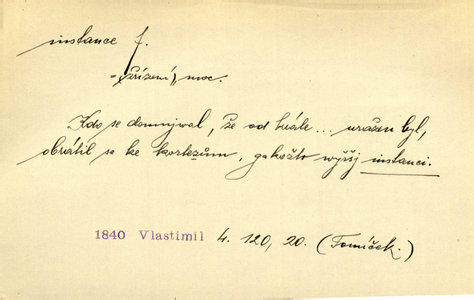 instance f.
-(zřízení), moc.
Kdo se domnýwal, že od krále... uražen byl,
obrátil se ke kortezům, gakožto wyšší instanci.
1840 Vlastimil 4. 120, 20. (Tomíček.)